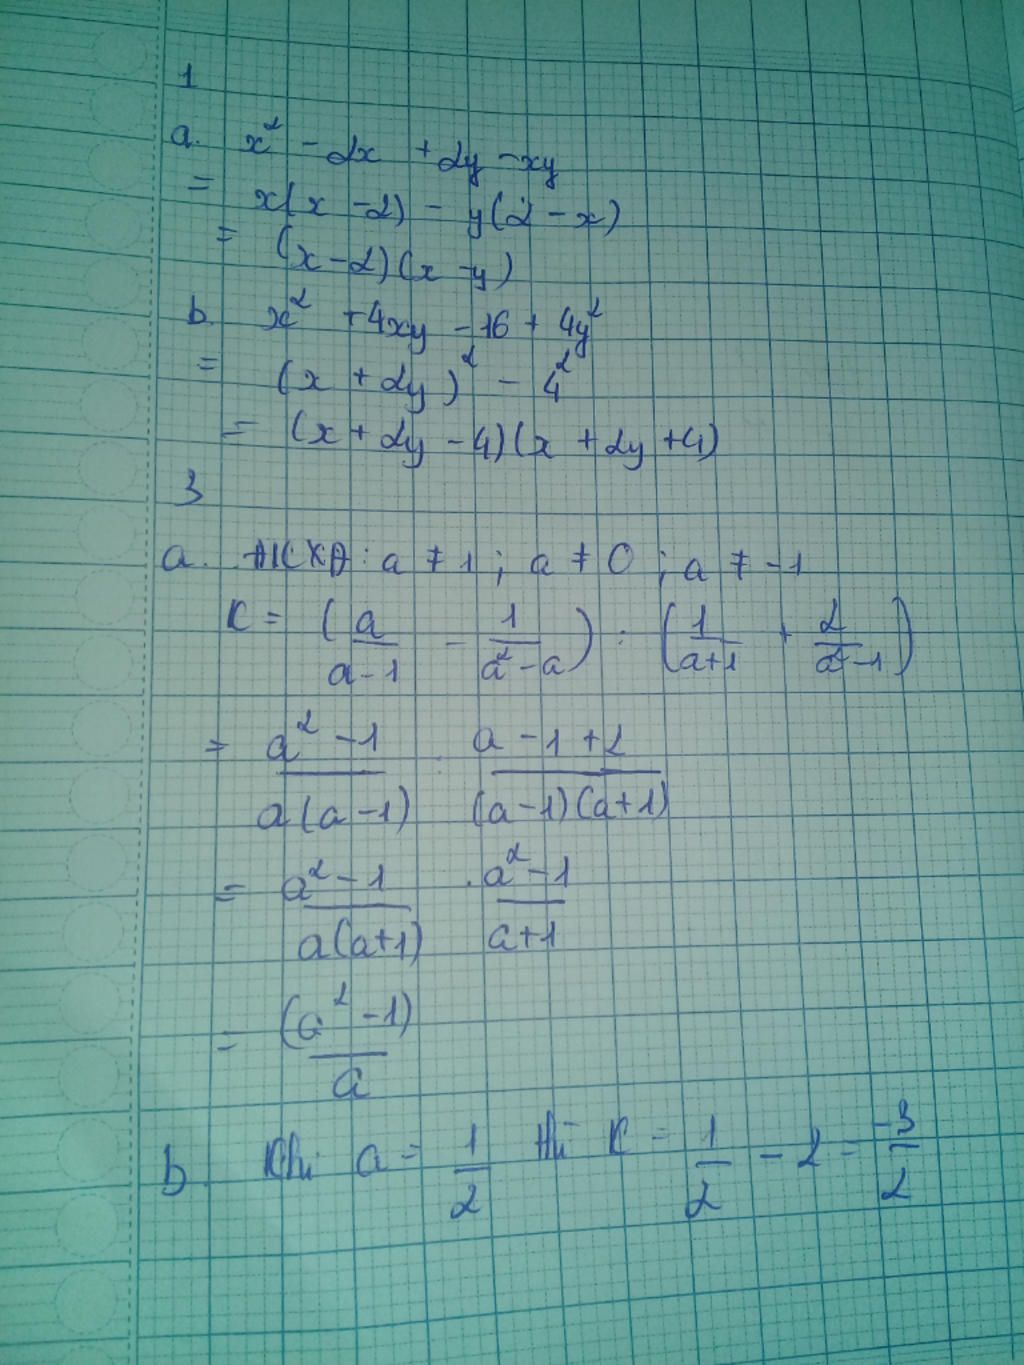 1
a. x² - 2x + 2y - xy
= x(x - 2) - y(2 - x)
= (x - 2)(x - y)
b. x² + 4xy - 16 + 4y²
= (x + 2y)² - 4²
= (x + 2y - 4)(x + 2y + 4)
3
a. ĐKXĐ: a ≠ 1; a ≠ 0; a ≠ -1
K = (a/(a-1) - 1/(a²-a)) : (1/(a+1) + 2/(a²-1))
= (a² - 1)/(a(a - 1)) : (a - 1 + 2)/((a-1)(a+1))
= (a² - 1)/(a(a+1)) . (a² - 1)/(a+1)
= (a² - 1)/a
b. Khi a = 1/2 thì K = 1/2 - 2 = -3/2